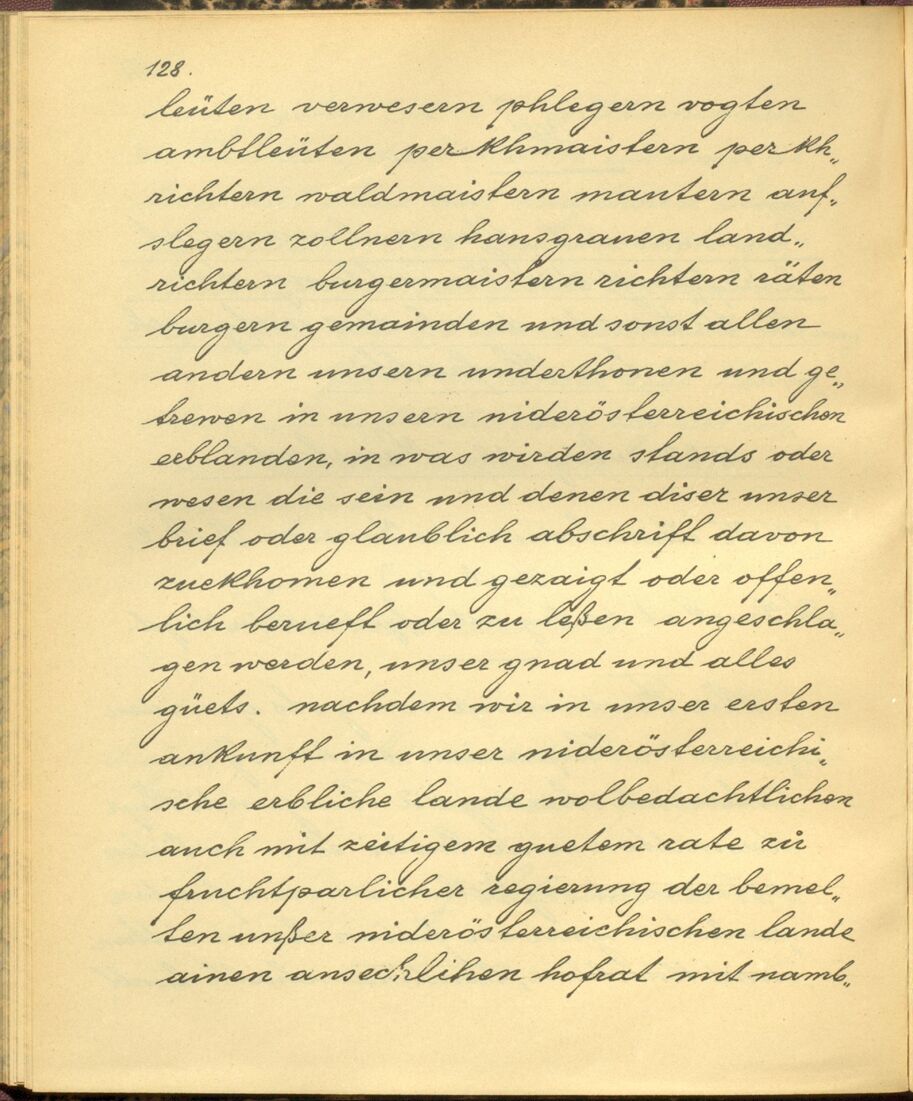 128.
leüten verwesern phlegern vogten
ambtleüten perkhmaistern perkh„
richtern waldmaistern mautern auf„
slegern zollnern hansgrauen land„
richtern burgermaistern richtern räten
burgern gemainden und sonst allen
andern unsern underthonen und ge„
trewen in unsern niderösterreichischen
erblanden, in was wirden stands oder
wesen die sein und denen diser unser
brief oder glaublich abschrift davon
zuekhomen und gezaigt oder offen„
lich berueft oder zu leßen angeschla„
gen werden, unser gnad und alles
güets. nachdem wir in unser ersten
ankunft in unser niderösterreichi„
sche erbliche lande wolbedachtlichen
auch mit zeitigem guetem rate zů
fruchtparlicher regierung der bemel„
ten unßer niderösterreichischen lande
ainen ansechlihen hofrat mit namb„